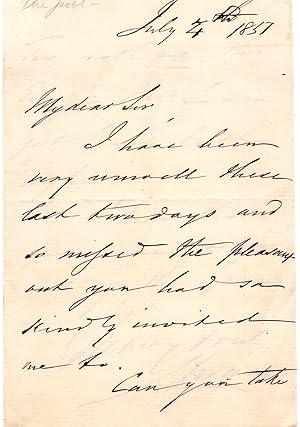 the poet -
July 4th 1857
My dear Sir
I have been
very unwell these
last two days and
so missed the pleasure
out you had so
kindly invited
me to.
Can you take